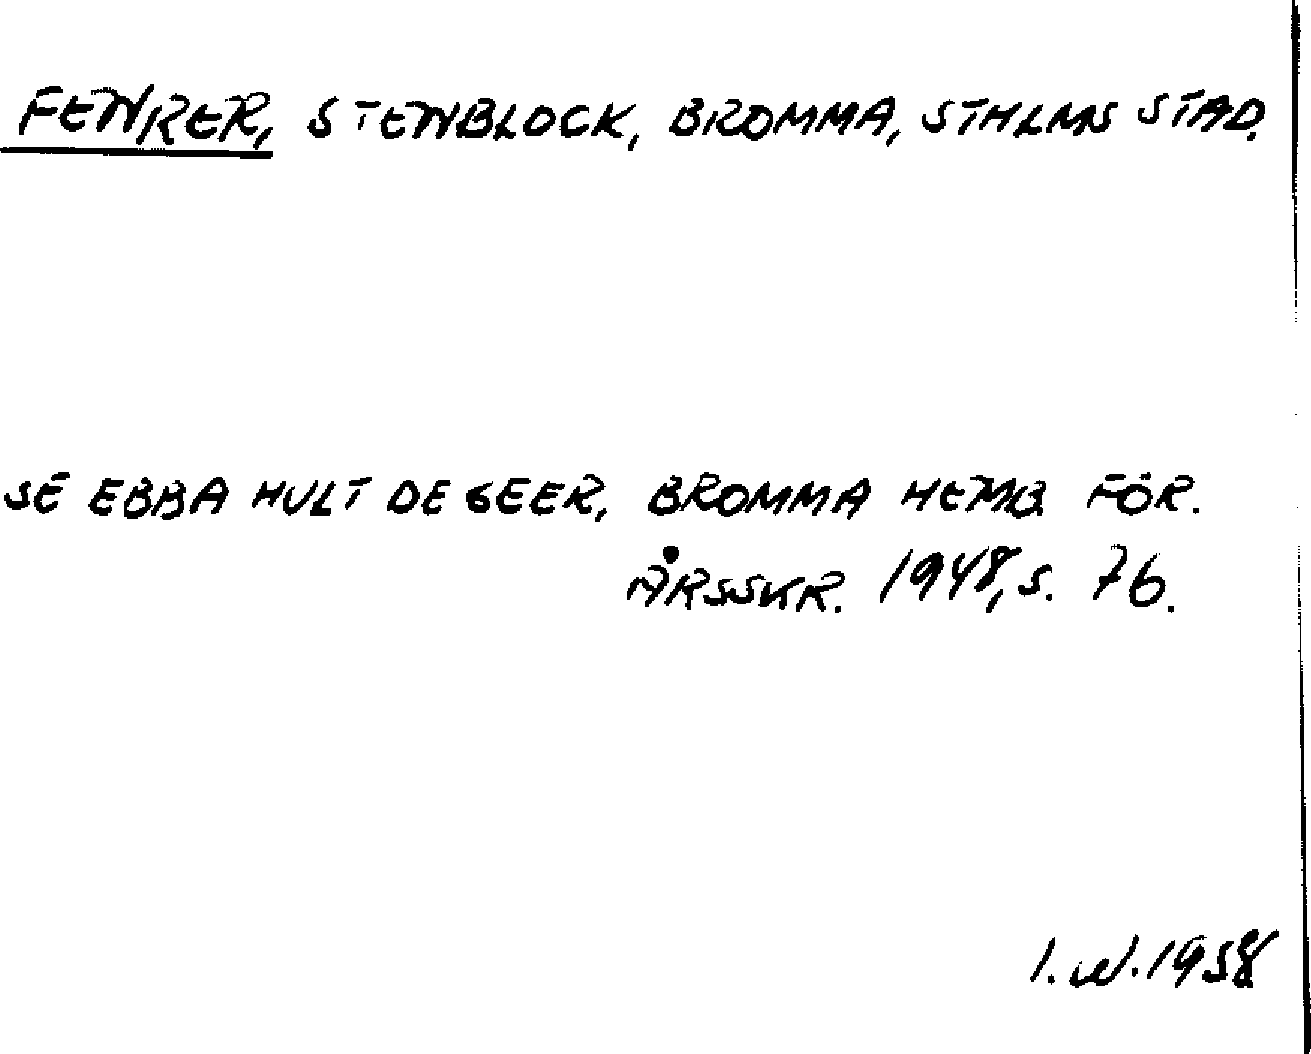 FENRER, STENBLOCK, BROMMA, STHLMS STAD.
SE EBBA HULT DE GEER, BROMMA HEMB FÖR.
ÅRSSKR. 1948, S. 76.
I. W. 1958